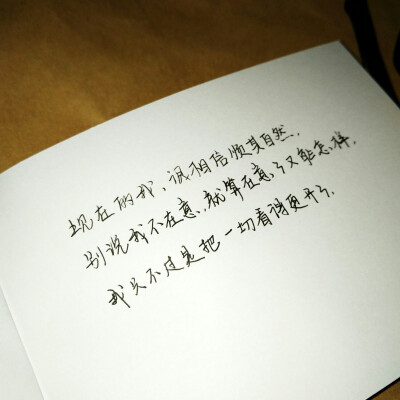 现在的我，很相信顺其自然.
别说我不在意.就算在意了又能怎样.
我只不过是把一切看得更开了.